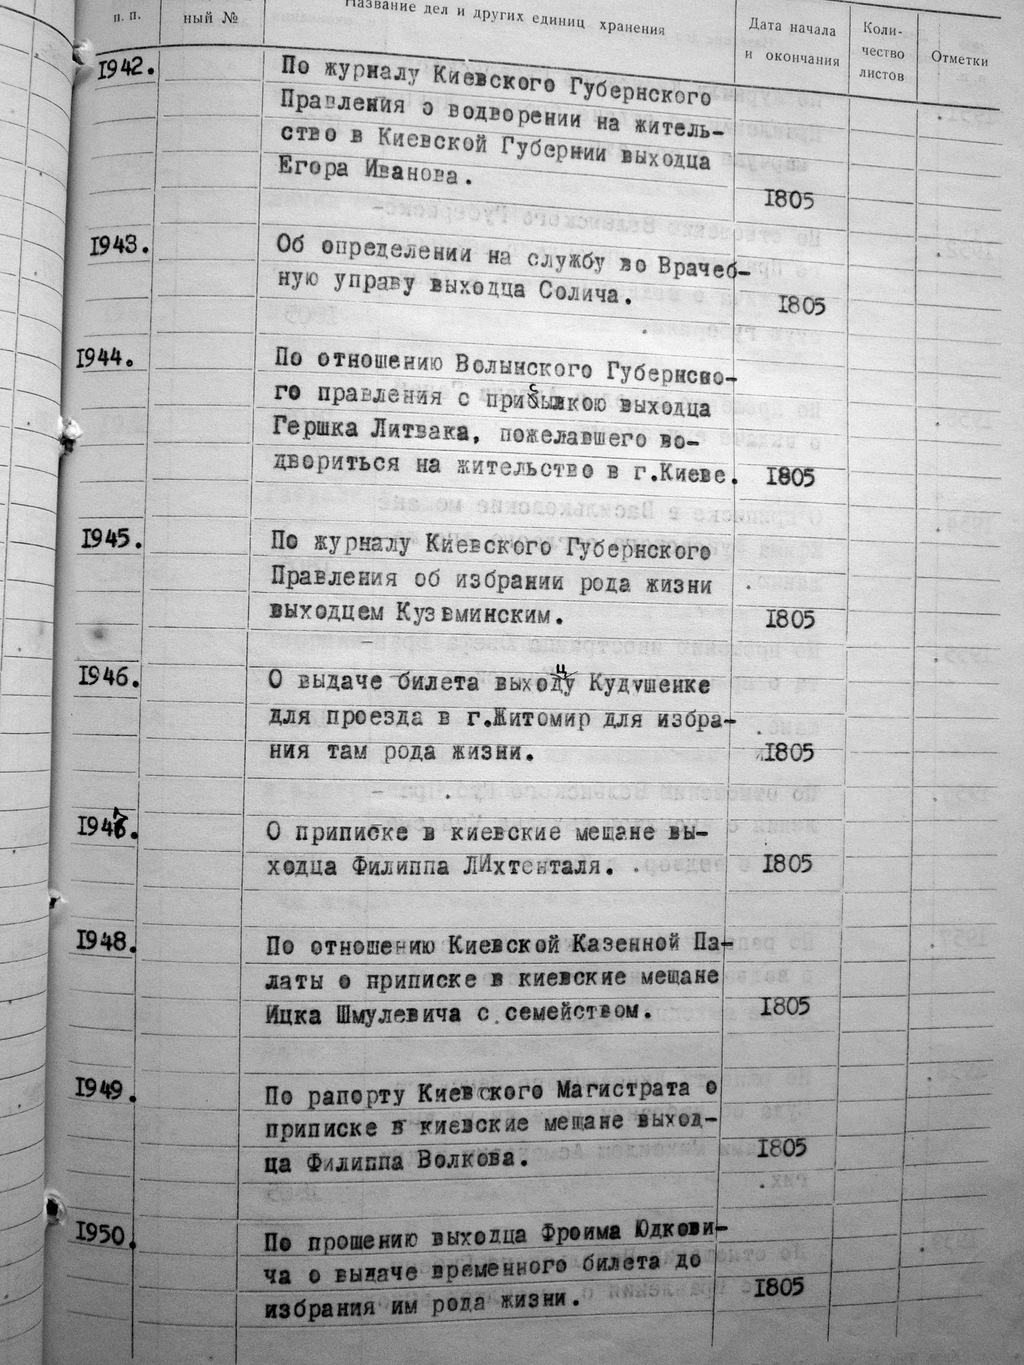 п. п.
ный №
Название дел и других единиц хранения
Дата начала
и окончания
Коли-
чество
листов
Отметки
1942.
По журналу Киевского Губернского
Правления о водворении на житель-
ство в Киевской Губернии выходца
Егора Иванова.
1805
1943.
Об определении на службу во Врачеб-
ную управу выходца Солича.
1805
1944.
По отношению Волынского Губернско-
го правления с присылкою выходца
Гершка Литвака, пожелавшего во-
двориться на жительство в г.Киеве.
1805
1945.
По журналу Киевского Губернского
Правления об избрании рода жизни
выходцем Кузьминским.
1805
1946.
О выдаче билета выходцу Кудушенке
для проезда в г.Житомир для избра-
ния там рода жизни.
1805
1947.
О приписке в киевские мещане вы-
ходца Филиппа ЛИхтенталя.
1805
1948.
По отношению Киевской Казенной Па-
латы о приписке в киевские мещане
Ицка Шмулевича с семейством.
1805
1949.
По рапорту Киевского Магистрата о
приписке в киевские мещане выход-
ца Филиппа Волкова.
1805
1950.
По прошению выходца Фроима Юдкови-
ча о выдаче временного билета до
избрания им рода жизни.
1805